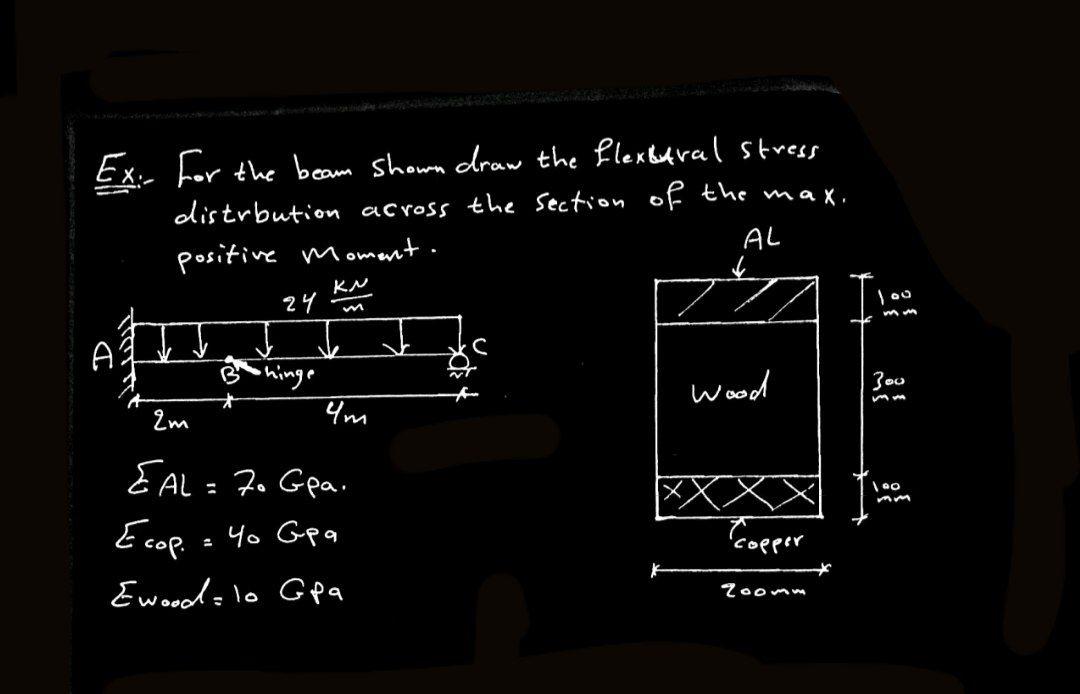 Ex:- For the beam shown draw the flextural stress
distrbution across the section of the max.
positive moment.
AL
24 KN/m
100 mm
A
C
B hinge
Wood
300 mm
2m
4m
E AL = 70 Gpa.
100 mm
E cop. = 40 Gpa
Copper
E wood = 10 Gpa
200mm